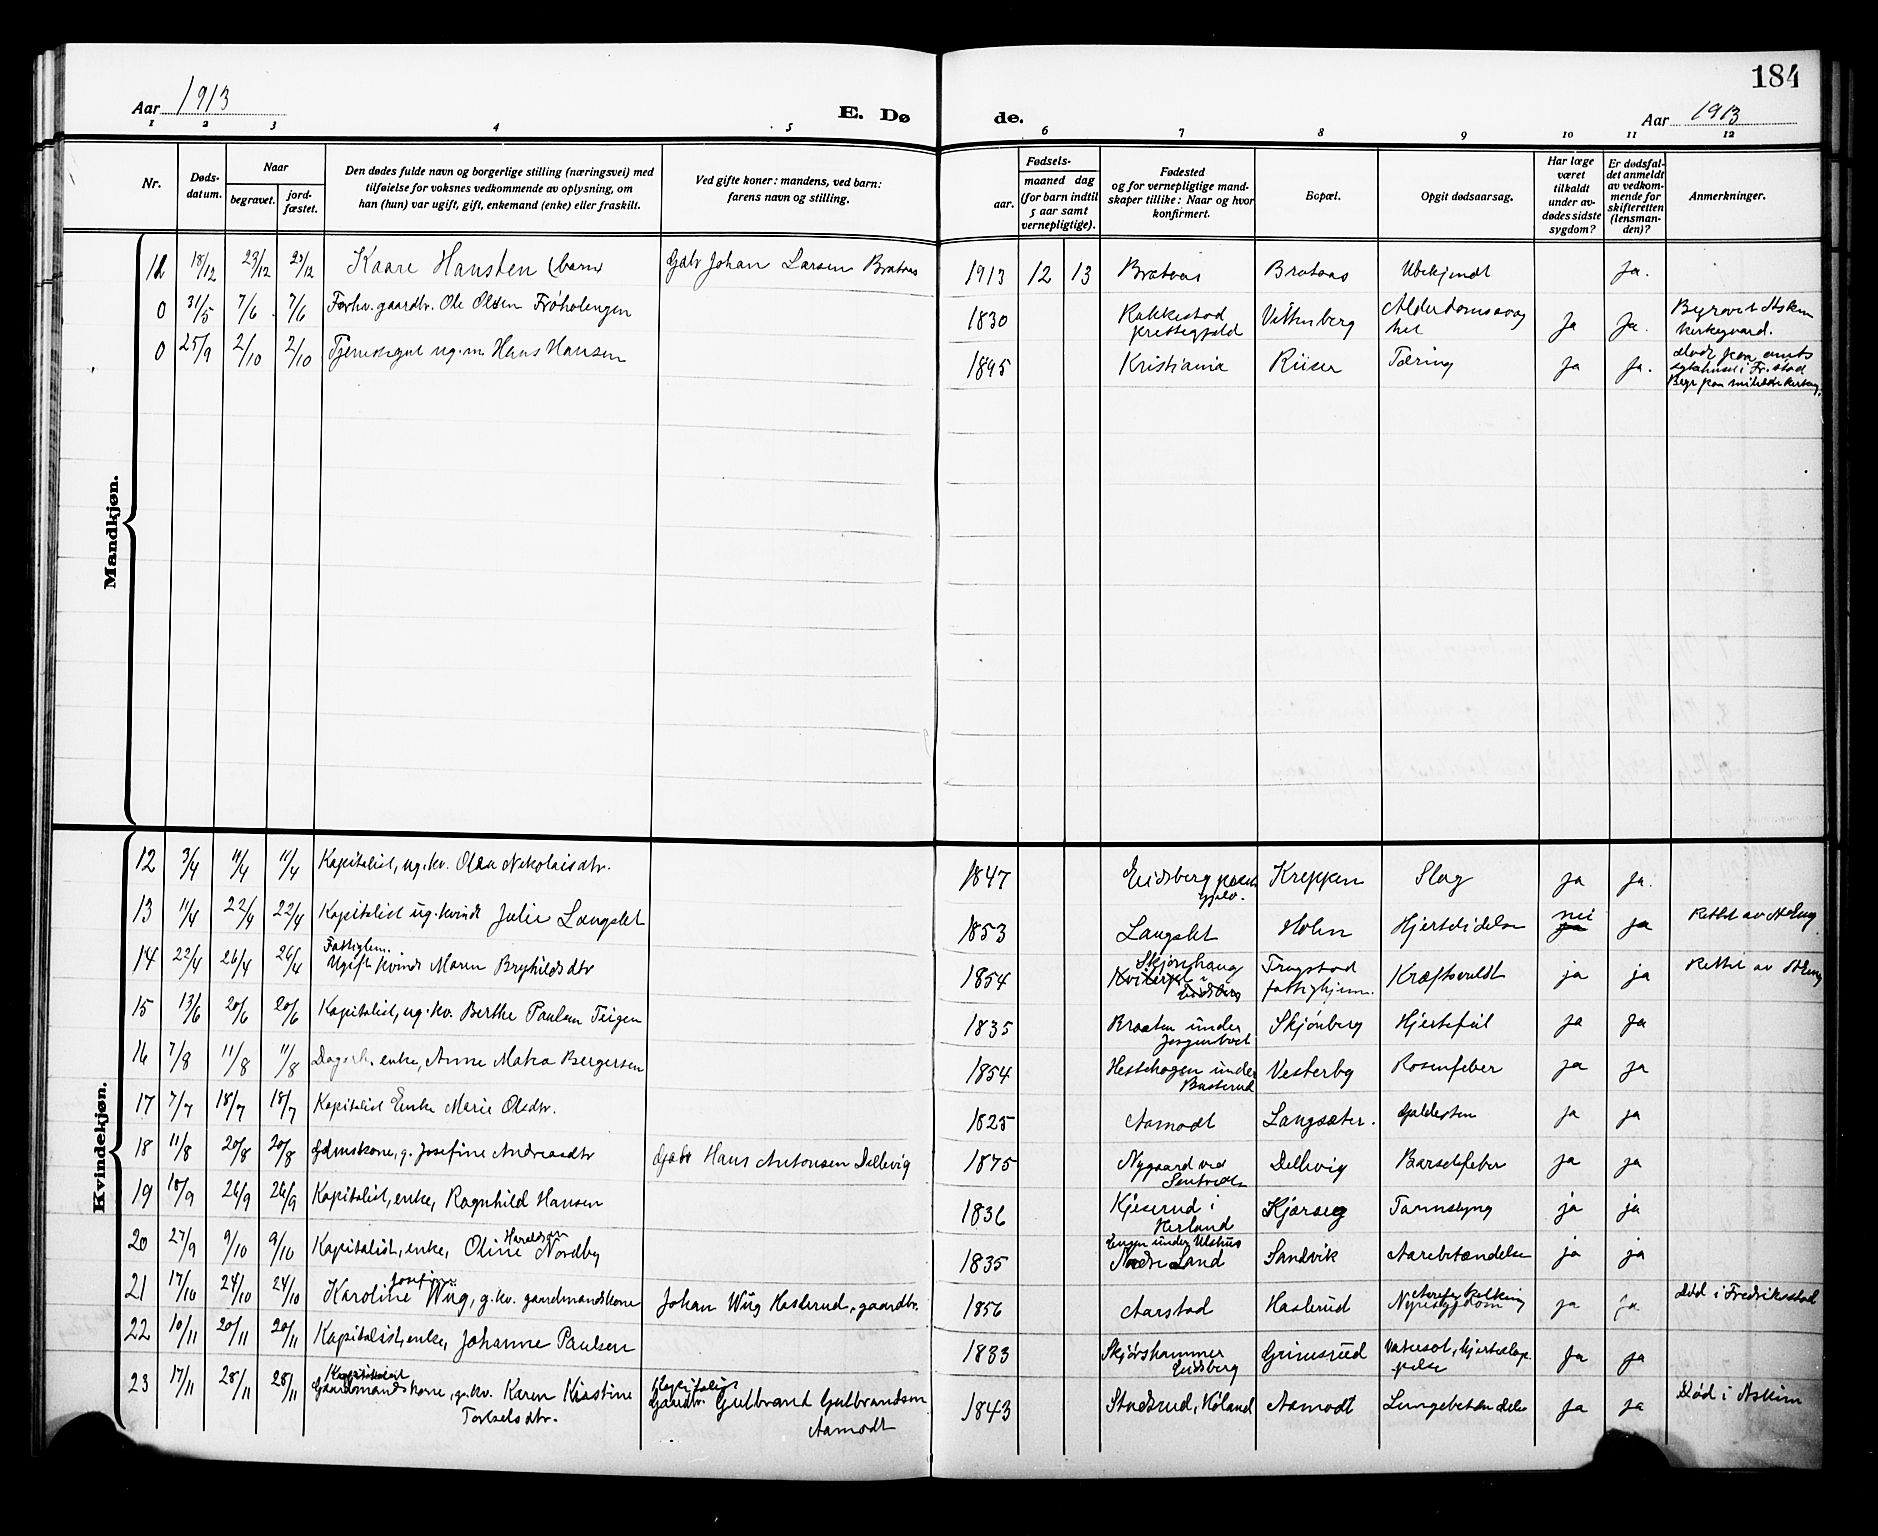 184
Aar 1913 E. Døde. Aar 1913
1 2 3 4 5 6 7 8 9 10 11 12
Nr.
Døds-
datum.
Naar
begravet.
jord-
fæstet.
Den dødes fulde navn og borgerlige stilling (næringsvei) med
tilføielse for voksnes vedkommende av oplysning, om
han (hun) var ugift, gift, enkemand (enke) eller fraskilt.
Ved gifte koner: mandens, ved barn:
farens navn og stilling.
Fødsels-
aar. maaned dag
(for barn indtil
5 aar samt
vernepligtige).
Fødested
og for vernepligtige mand-
skaper tillike: Naar og hvor
konfirmert.
Bopæl.
Opgit dødsaarsag.
Har læge
været
tilkaldt
under av-
dødes sidste
sygdom?
Er dødsfal-
det anmeldt
av vedkom-
mende for
skifteretten
(lensman-
den)?
Anmerkninger.
Mandkjøn.
18/12 23/12 23/12 Kaare Hansten (barn) Gdbr Johan Larsen Brataas 1913 12 13 Brataas Brataas Ubekjendt Ja.
0 31/5 7/6 7/6 Forhv. gaardbr. Ole Olsen Frøholengen 1830 Rakkestad prestegjeld Vittenberg Alderdomssvaghet Ja Ja. Begravet Askim kirkegaard.
0 25/9 2/10 2/10 Tjenestegut ug.m. Hans Hansen 1895 Kristiania Riiser Tæring Ja Ja. død paa amts sykehuset i Fr.stad
Kvindekjøn.
12 3/4 11/4 11/4 Kapitalist, ug.kv. Olea Nikolaisdtr. 1847 Eidsberg Kreppen Slag ja ja.
13 11/4 22/4 22/4 Kapitalist ug. kvinde Julie Langslet 1853 Langslet Holm Hjertelidelse nei ja ja Rettet av
14 22/4 26/4 26/4 Fattiglem. Ugift kvinde Maren Brynhildsdtr 1854 Skjønhaug Trøgstad fattighjem. Kræftsvulst ja ja Rettet av
15 13/6 20/6 20/6 Kapitalist, ug.kv. Berthe Paulsen Teigen 1835 Braaten under Skjønberg Hjertefeil ja ja
16 7/8 11/8 11/8 Dagarb. enke, Anne Matea Bergersen 1854 Hestehagen under Busterud Vesterby Rosenfeber ja ja
17 7/7 18/7 18/7 Kapitalist Enke Marie Olsdtr. 1825 Aamodt Langsæter. Galdesten ja ja
18 11/8 20/8 20/8 Gdmskone, g. Josefine Andreasdtr Gdbr Hans Antonsen Dellevig 1875 Nygaard ved Dellevig Barselfeber ja ja
19 18/9 26/9 26/9 Kapitalist, enke, Ragnhild Hansen 1836 Kjeserud i Herland Kjærseg Tarmslyng ja ja
20 27/9 9/10 9/10 Kapitalist, enke, Oline Haraldsen Nordby 1835 Engen under Ulshus Nordre Land Sandvik Aarebetændelse ja ja
21 17/10 24/10 24/10 Karoline Josefine Wüg, g.kv. gaardmandskone Johan Wüg Haslerud, gaardbr. 1856 Aarstad Haslerud Nyresygdom ja ja Død i Fredriksstad
22 10/11 20/11 20/11 Kapitalist, enke, Johanne Paulsen 1833 Skjørshammer Eidsberg Grimsrud Vatersot, hjerteslappelse Ja ja
23 17/11 28/11 28/11 Kapitalist Gaardmandskone, g.kv. Karen Kirstine Torkelsdtr. Kapitalist Gaardbr. Gulbrand Gulbrandsen Aamodt 1843 Stadsrud, Høland Aamodt Lungebetændelse Ja ja Død i Askim